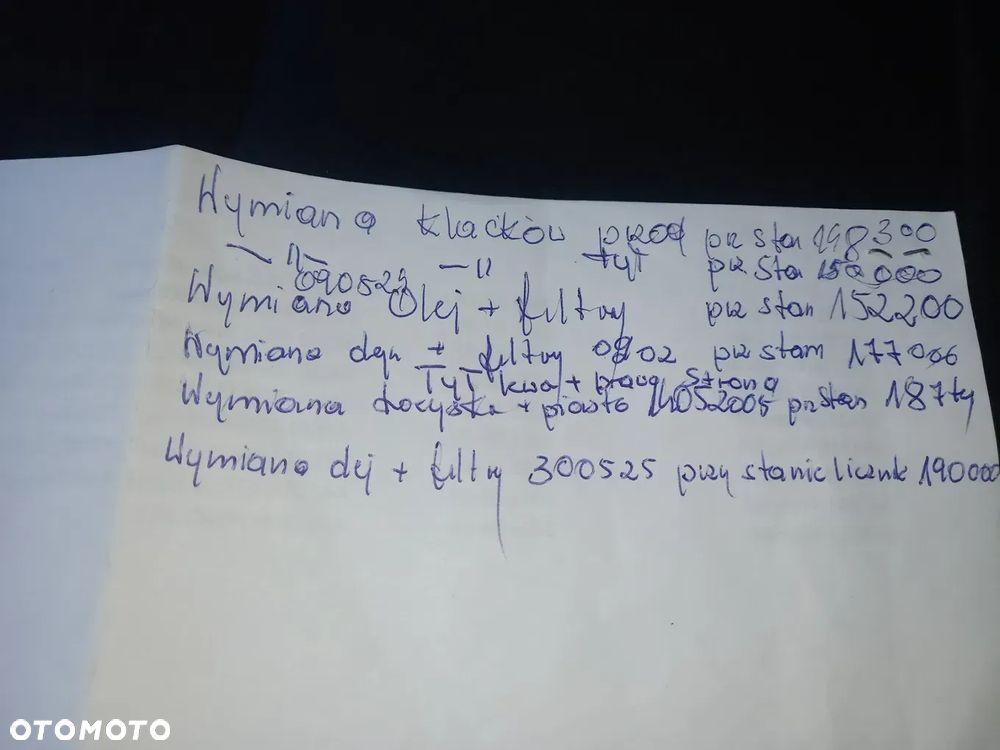 Wymiana klacków przod prz stan 198300
— 11 — — 11 tył prz sta 150000
090522
Wymiana Olej + filtry prz stan 152200
Wymiana olej + filtry 09 02 prz stam 177000
Tył lewa + prawa strona
Wymiana łożyska + piasta 14052005 prz stan 187ty
Wymiana olej + filtry 300525 przy stanie licznk 190000
OTOMOTO